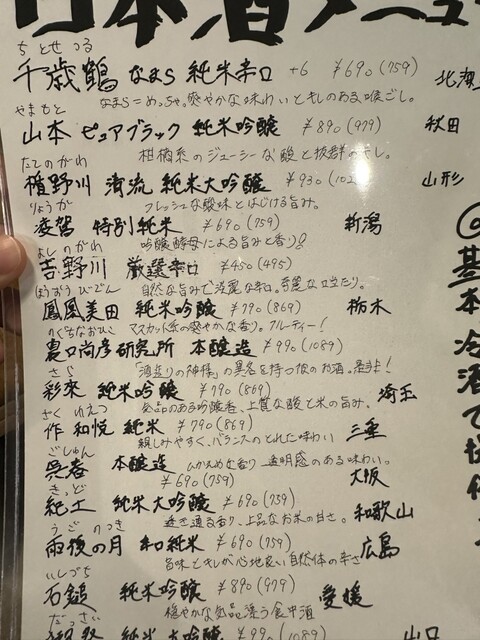 日本酒メニュー
ちとせつる
千歳鶴 なまら 純米辛口 +6 ¥690(759)
なまら=めっちゃ。爽やかな味わいとキレのある喉ごし。
やまもと
山本 ピュアブラック 純米吟醸 ¥890(979) 秋田
柑橘系のジューシーな酸と抜群のキレ。
たてのがわ
楯野川 清流 純米大吟醸 ¥930 山形
フレッシュな酸味とはじける旨み。
りょうが
凌駕 特別純米 ¥690(759) 新潟
吟醸酵母による旨みと香り!
よしのがわ
吉野川 厳選辛口 ¥450(495)
自然な旨みで淡麗な辛口。綺麗な口当たり。
ほうおうびでん
鳳凰美田 純米吟醸 ¥790(869) 栃木
マスカット系の爽やかな香り。フルーティー!
のぐちなおひこ
農口尚彦研究所 本醸造 ¥990(1089)
「酒造りの神様」の異名を持つ彼のお酒。
さら
彩來 純米吟醸 ¥790(869) 埼玉
気品のある吟醸香、上質な酸と米の旨み、
さく わえつ
作 和悦 純米 ¥790(869) 三重
親しみやすく、バランスのとれた味わい
ごしゅん
呉春 本醸造 ひかえめな香り 透明感のある味わい。
¥690(759) 大阪
きっど
紀土 純米大吟醸 ¥690(759) 和歌山
透き通る香り、上品なお米の甘さ。
うごのつき
雨後の月 和純米 ¥690(759) 広島
旨味とキレが心地良い自然体の辛さ
いしづち
石鎚 純米吟醸 ¥890(979) 愛媛
穏やかな気品漂う食中酒
だっさい
獺祭 純米大吟醸 ¥990(1089) 山口
@基本 冷酒で